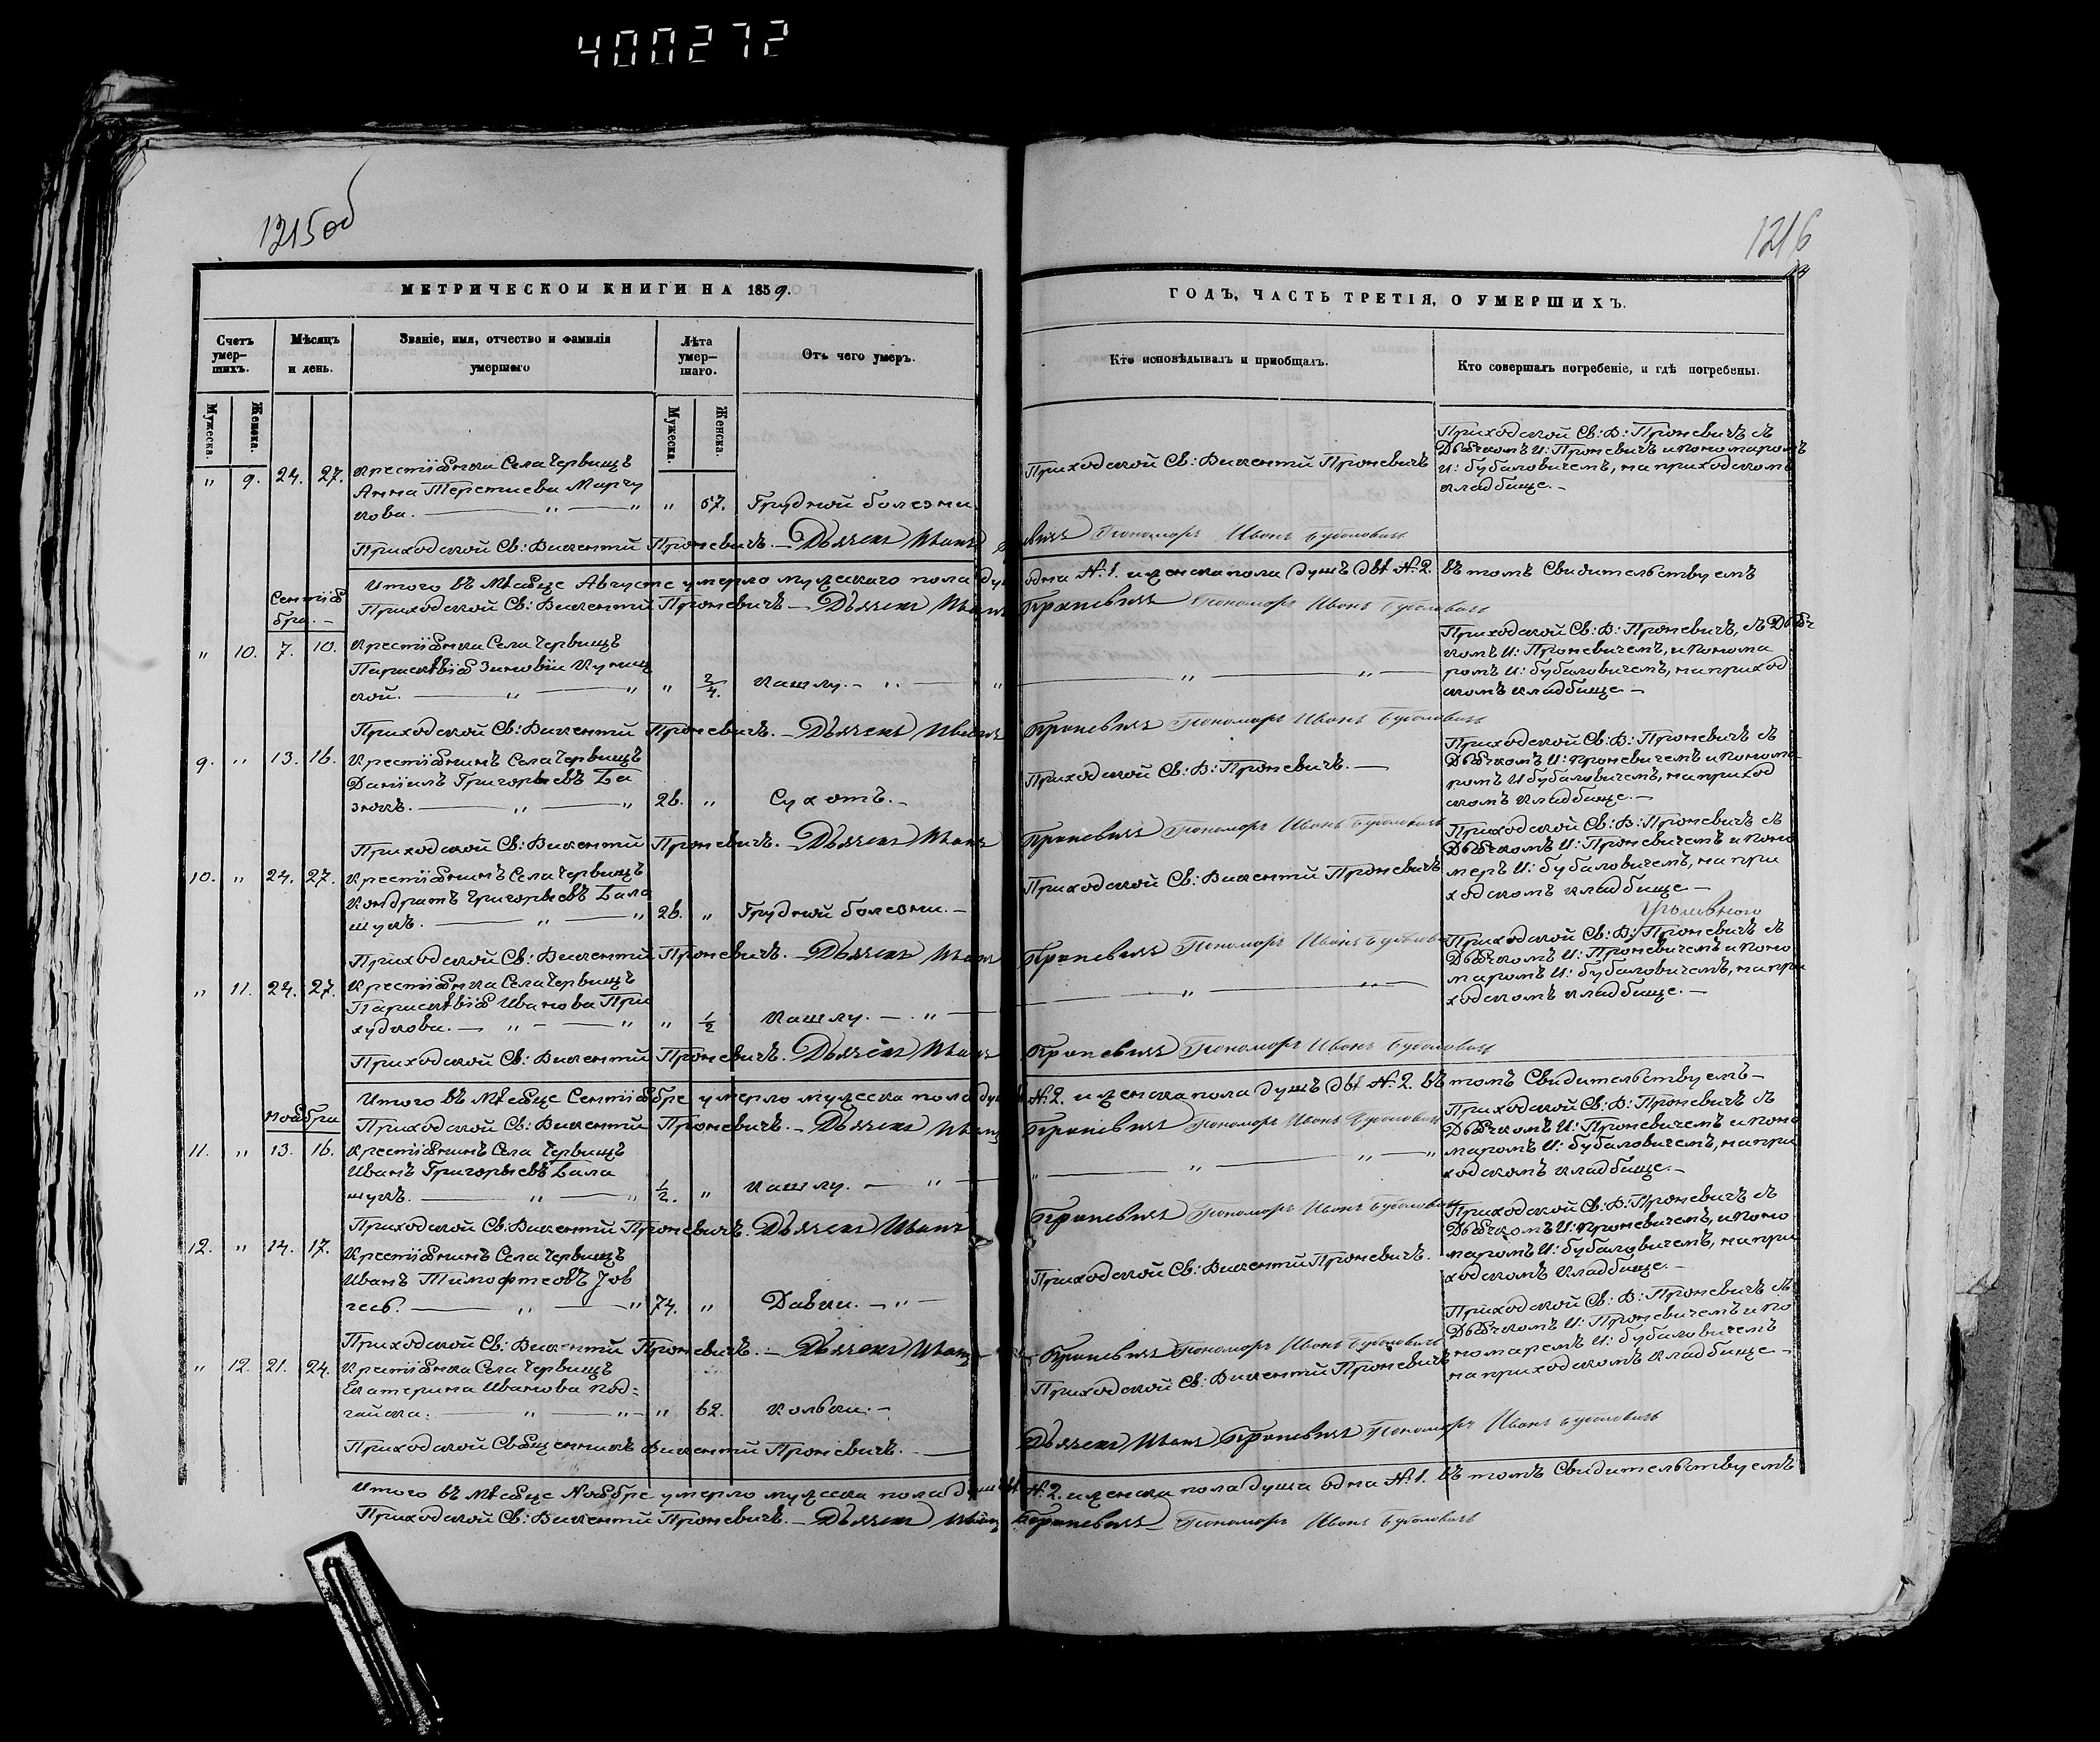 400272
1215об
1216
МЕТРИЧЕСКОЙ КНИГИ НА 1859.
ГОДЪ, ЧАСТЬ ТРЕТІЯ, О УМЕРШИХЪ.
Счетъ умер-шихъ.
Мѣсяцъ и день.
Званіе, имя, отчество и фамилія умершаго
Лѣта умер-шаго.
Отъ чего умеръ.
Кто исповѣдывалъ и пріобщалъ.
Кто совершалъ погребеніе, и гдѣ погребены.
Мужеска.
Женска.
Мужеска.
Женска.
" 9. 24. 27. Крестіянка Села Червищъ
Анна Терентиева Марчу
кова. " " " 57. Грудной болезни
Приходской Св: Викентій Проневичъ
Приходской Св: В: Проневичъ съ
Дьячкомъ И: Проневичемъ и пономаромъ
И: Бубаловичемъ, на приходскомъ
кладбище. —
Приходской Св: Викентій Проневичъ. — Дьячекъ Иванъ Проневичъ Пономарь Иванъ Бубаловичъ
Итого въ Мѣсяце Августе умерло мужескаго пола душъ одна №. 1. и женска пола душъ двѣ №. 2. въ томъ Свидительствуемъ
Приходской Св: Викентій Проневичъ — Дьячекъ Иванъ Проневичъ Пономарь Иванъ Бубаловичъ
Сентія
бра. —
" 10. 7. 10. Крестіянка Села Червищъ
Параскѣвія Зиновіи Куниц
кой. " " " 2/4. Кашлу. — " —
Приходской Св: В: Проневичъ, съ Дьяч
комъ И: Проневичемъ, и Понома
ромъ И: Бубаловичемъ, на приход
скомъ кладбище. —
Приходской Св: Викентій Проневичъ. — Дьячекъ Иванъ Проневичъ Пономарь Иванъ Бубаловичъ
9. " 13. 16. Крестіянинъ Села Червищъ
Даніилъ Григорьевъ
26. " Сухотъ. —
Приходской Св: В: Проневичъ. —
Приходской Св: В: Проневичъ съ
Дьячкомъ И: Проневичемъ и понома
ромъ И Бубаловичемъ, на приход
скомъ кладбище. —
Приходской Св: Викентій Проневичъ. Дьячекъ Иванъ Проневичъ Пономарь Иванъ Бубаловичъ
10. " 24. 27. Крестіянинъ Села Червищъ
Кондратъ Григорьевъ Бала
шукъ. " " 26. " Грудной болезни. —
Приходской Св: Викентій Проневичъ
Приходской Св: В: Проневичъ съ
Дьячкомъ И: Проневичемъ и Поно
меръ И: Бубаловичемъ, на при
ходскомъ кладбище —
Приходской Св: Викентій Проневичъ. — Дьячекъ Иванъ Проневичъ Пономарь Иванъ
" 11. 24. 27. Крестіянка Села Червищъ
Параскѣвія Иванова При
ходкова. — " — " " 1/2 Кашлу. — " —
Приходской Св: В: Проневичъ съ
Дьячкомъ И: Проневичемъ и Поно
маромъ И: Бубаловичемъ, на при
ходскомъ кладбище. —
Приходской Св: Викентій Проневичъ. Дьячекъ Иванъ Проневичъ Пономарь Иванъ Бубаловичъ
Итого въ Мѣсяце Сентіябре умерло мужеска пола душъ №. 2. и женска пола душъ двѣ №. 2. въ томъ Свидительствуемъ —
Ноября
Приходской Св: Викентій Проневичъ. — Дьячекъ Иванъ Проневичъ Пономарь Иванъ Бубаловичъ
11. " 13. 16. Крестіянинъ Села Червищъ
Иванъ Григорьевъ Бала
шукъ. " " 1/2. " Кашлу. — " —
Приходской Св: В: Проневичъ съ
Дьячкомъ И: Проневичемъ и Поно
маромъ И: Бубаловичемъ, на при
ходскомъ кладбище. —
Приходской Св: Викентій Проневичъ. Дьячекъ Иванъ Проневичъ Пономарь Иванъ Бубаловичъ
12. " 14. 17. Крестіянинъ Села Червищъ
Иванъ Тимофтеовъ
74. " Давки. — " —
Приходской Св: Викентій Проневичъ.
Приходской Св: В: Проневичъ съ
Дьячкомъ И: Проневичемъ, и Поно
маромъ И: Бубаловичемъ, на при
ходскомъ кладбище. —
Приходской Св: Викентій Проневичъ. — Дьячекъ Иванъ Проневичъ Пономарь Иванъ Бубаловичъ
" 12. 21. 24. Крестіянка Села Червищъ
Екатерина Иванова Под=
гайска. " " " 62. Колѣки. —
Приходской Св: Викентій Проневичъ
Приходской Св: В: Проневичъ съ
Дьячкомъ И: Проневичемъ и По
номаремъ И: Бубаловичемъ
на приходскомъ кладбище —
Приходской Священникъ Викентій Проневичъ. — Дьячекъ Иванъ Проневичъ Пономарь Иванъ Бубаловичъ
Итого въ Мѣсяце Ноябре умерло мужеска пола душъ №. 2. и женска пола душа одна №. 1. въ томъ Свидительствуемъ
Приходской Св: Викентій Проневичъ. — Дьячекъ Иванъ Проневичъ Пономарь Иванъ Бубаловичъ